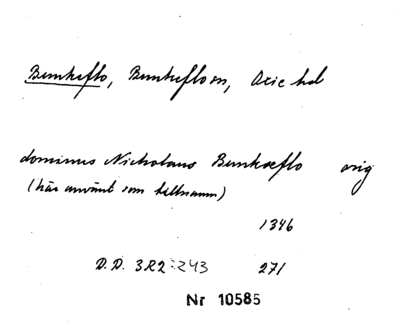 Bunkeflo, Bunkeflo sn, Oxie hd
dominus Nicholaus Bunkæflo orig
(här använt som tillnamn)
1346
D.D. 3R2:243 271
Nr 10585